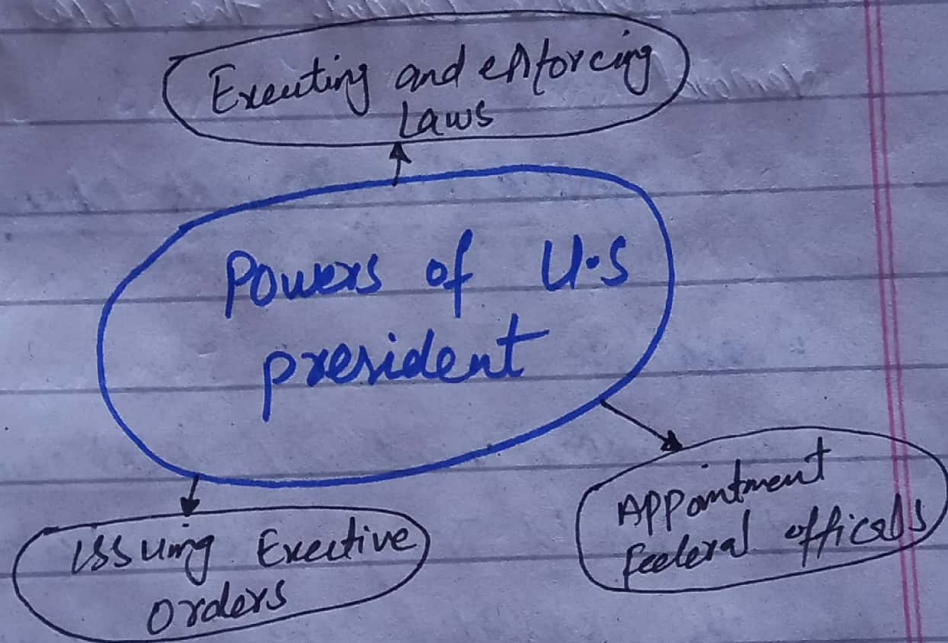 Executing and enforcing
Laws
Powers of U.S
president
Issuing Exective
orders
Appointment
Federal officals